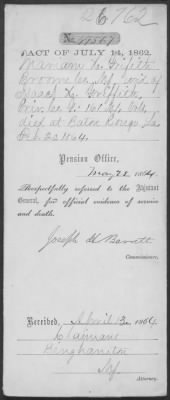 26762
No.
ACT OF JULY 14, 1862.
Mariam L. Griffith
Broome Co. N.Y. wid. of
Isaac L. Griffith
Priv. Co. 161 N.Y. Vols.
died at Baton Rouge, La.
1864
Pension Office,
May 21, 1864.
Respectfully referred to the Adjutant
General, for official evidence of service
and death.
Joseph H. Barrett
Commissioner.
Received, April 12, 1864.
Claimant
Binghamton
N.Y.
Attorney.